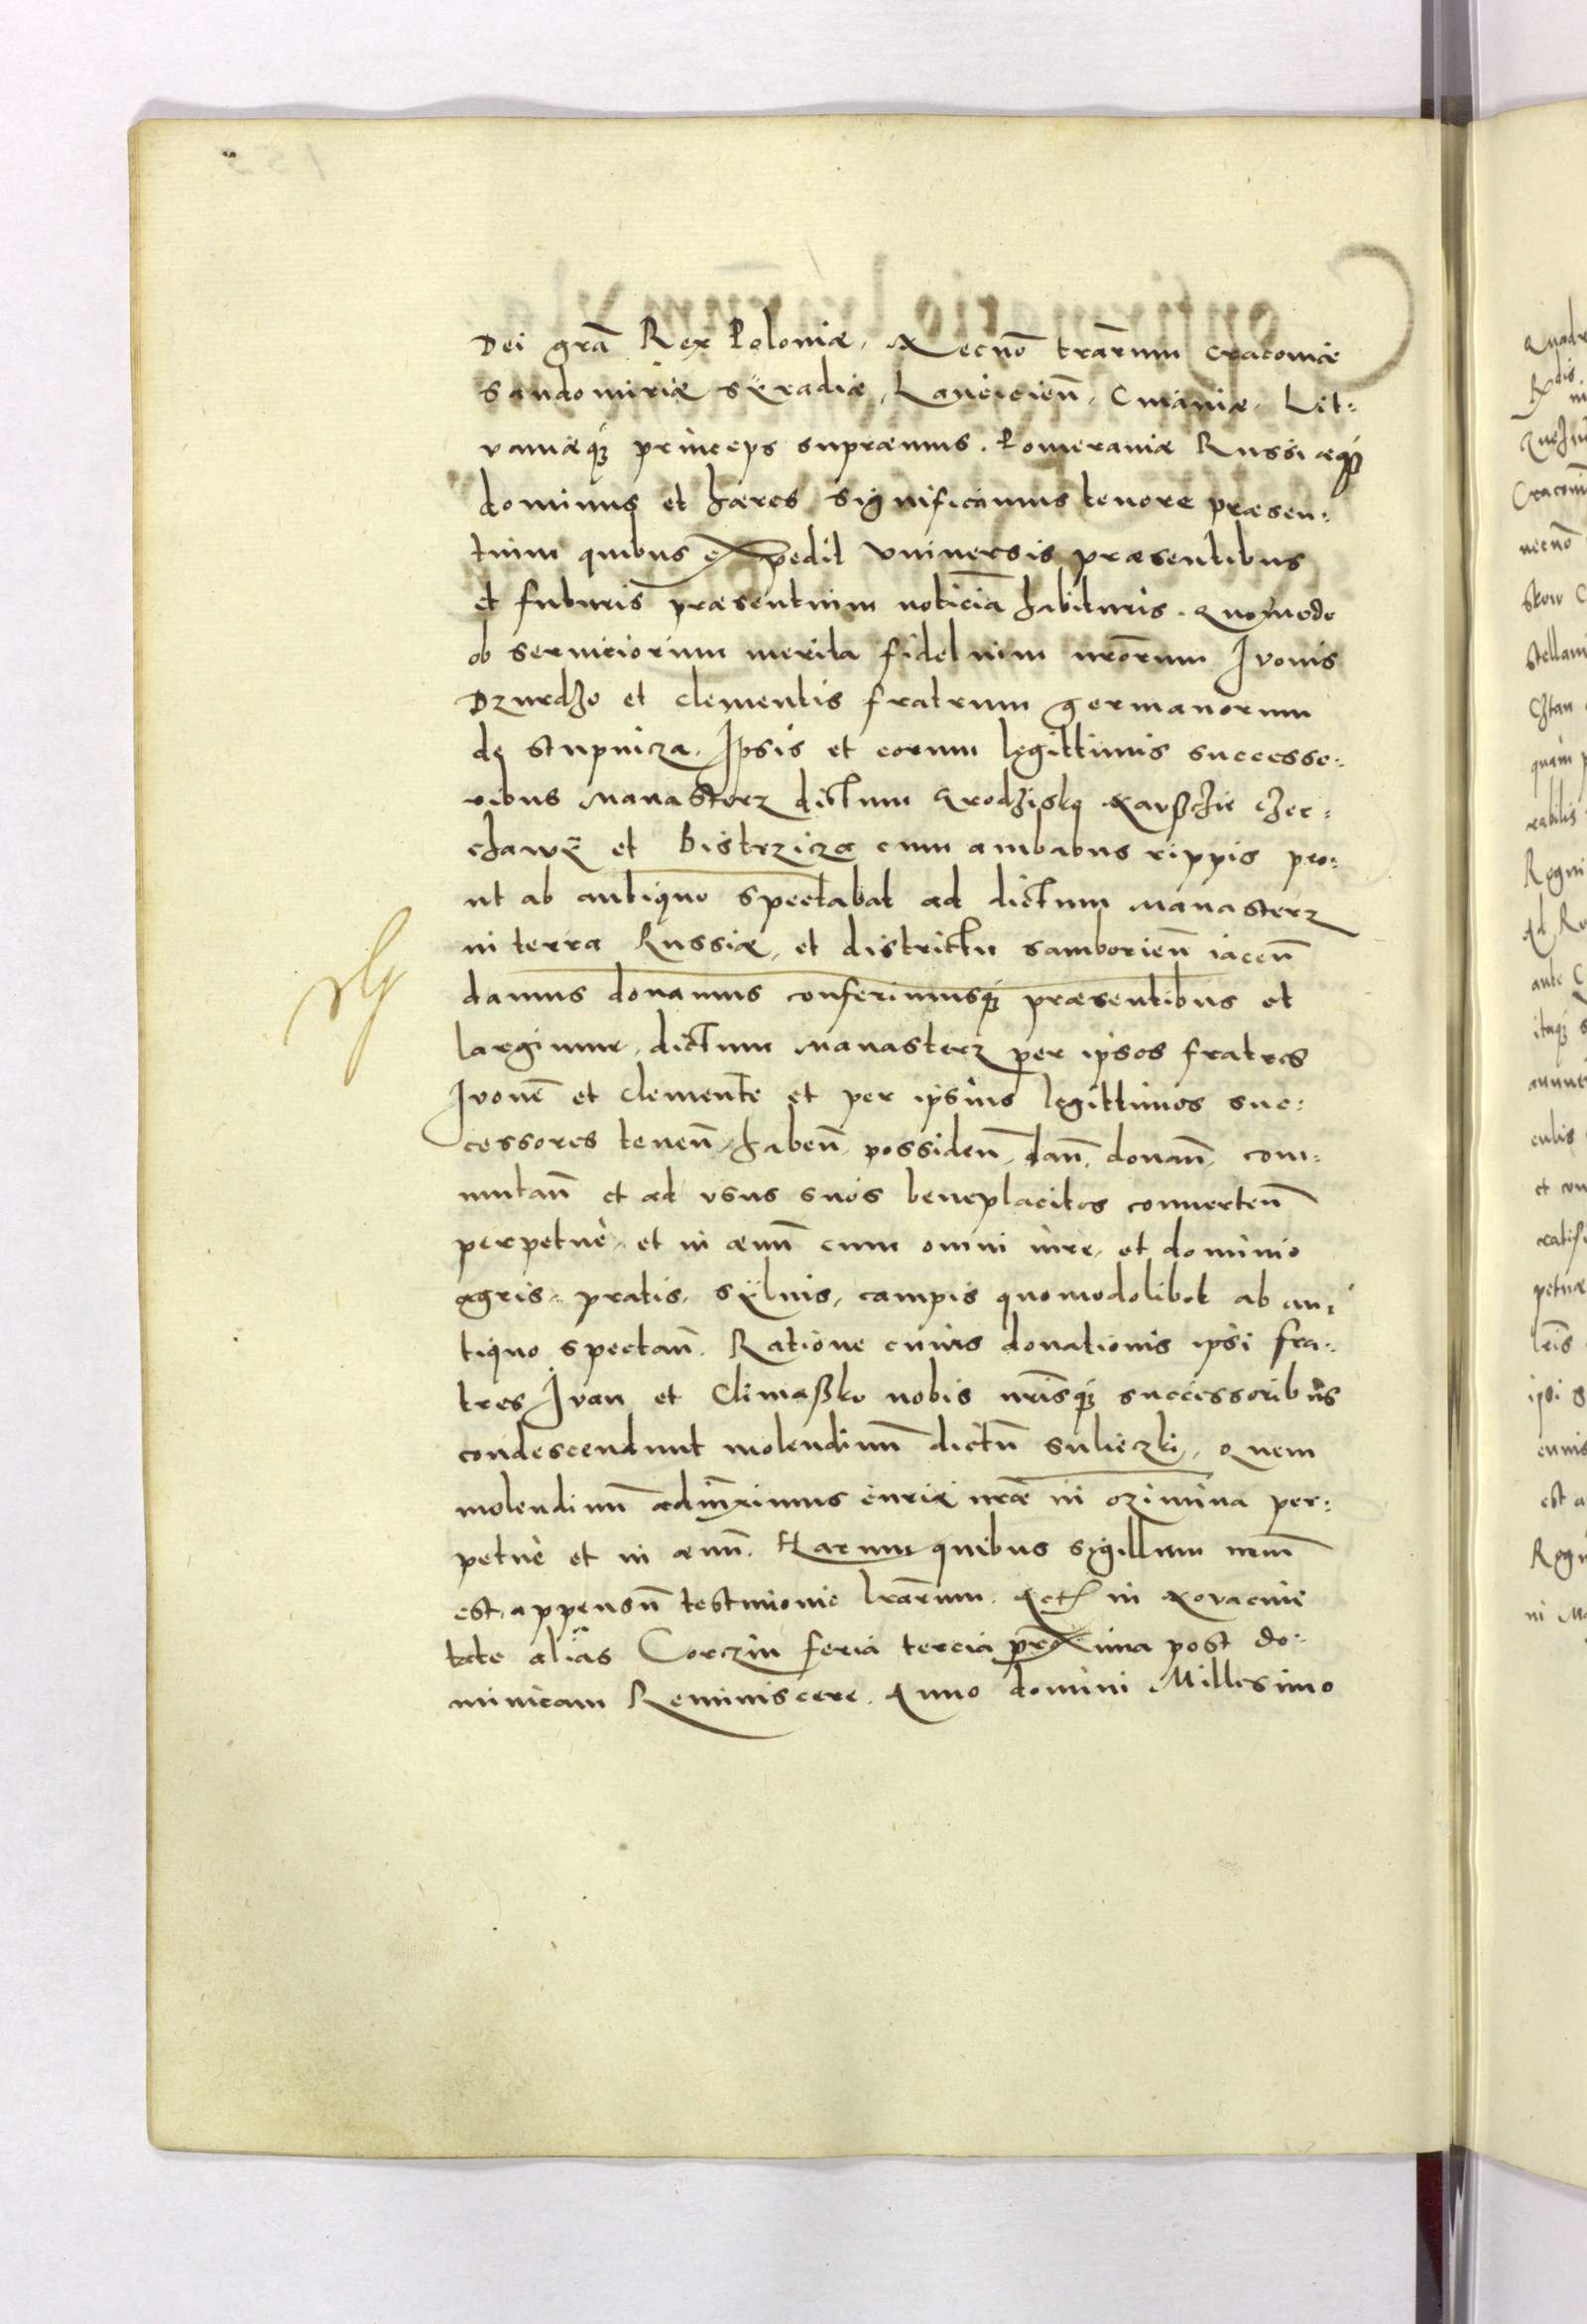 Dei grā Rex Poloniæ, Necnō trārum Cracoviæ
Sandomiriæ Sÿradiæ, Lanciciēn, Cuiaviæ, Lit-
vaniæq₃ princeps supræmus. Pomeraniæ Russiæq₃
dominus et hæres significamus tenore præsen-
tium quibus expedit vniuersis præsentibus
et futuris præsentium noticiā habituris. Quomodo
ob seruiciorum merita fidelium nrōrum Ivonis
Dzurdzo et Clementis fratrum germanorum
de Stupnicza. Ipsis et eorum legittimis successo-
ribus Manasterz dictum Grodzisko
chawÿ et Bistrzicza cum ambabus rippis pro-
ut ab antiquo spectabat ad dictum Manasterz
in terra Russiæ, et districtu Samboriēn iacēn
damus donamus conferimusq₃ præsentibus et
largimur, dictum Manasterz per ipsos fratres
Ivonē et Clementē et per ipsius legittimos suc-
cessores tenēn, habēn, possidēn, dān, donān, com-
mutān et ad vsus suos beneplacitos conuertēn
perpetuè, et in æuū cum omni iure, et dominio
agris, pratis, sÿluis, campis quomodolibet ab an-
tiquo spectān. Ratione cuius donationis ipsi fra-
tres Ivan et Climaßko nobis nrīsq₃ successoribus
condescendunt molendinū dictū Sulieczki, Quem
molendinū curiæ nræ in Ozimina per-
petuè et in æuū. Harum quibus sigillum nrūm
est appensū testimonio lrārum. Act in Novaciui
tate aliàs Corczin feria tercia proxima post do-
minicam Reminiscere. Anno domini Millesimo